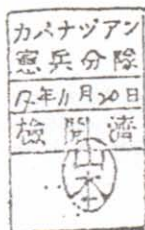 カバナツアン
憲兵分隊
17年11月20日
検閲済
山本